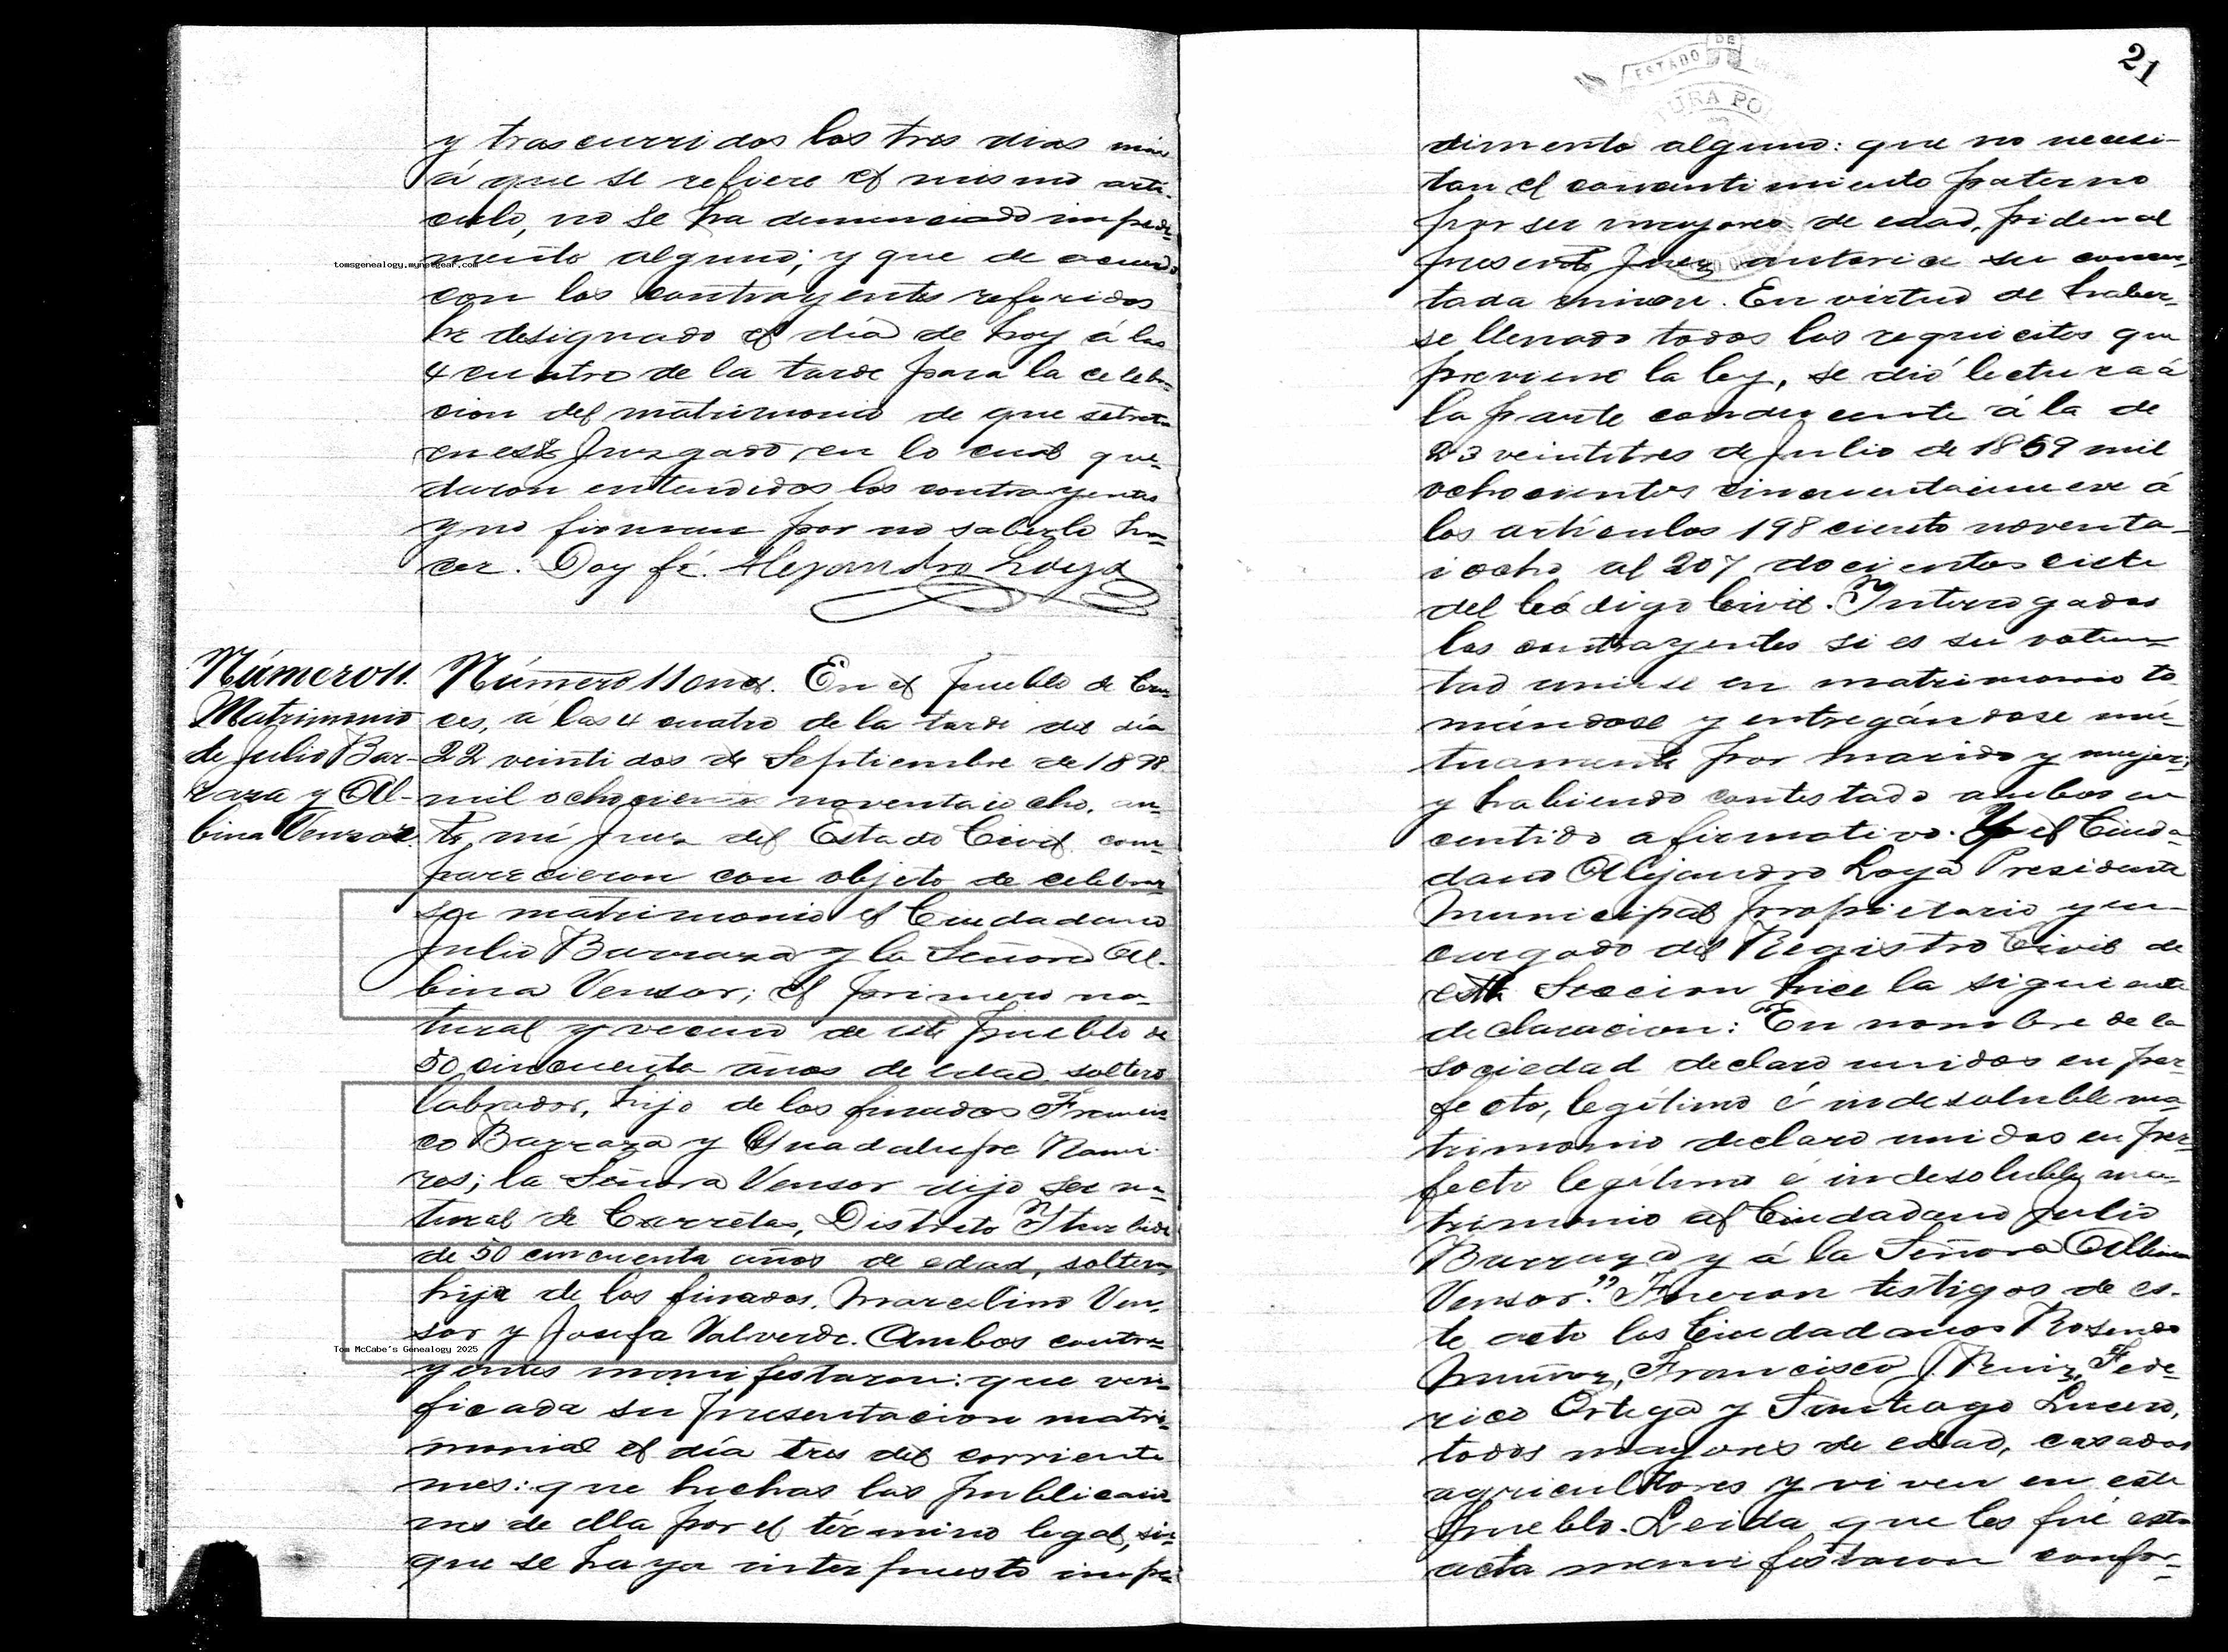 21
ESTADO DE
URA PO
y trascurridos los tres dias mas
á que se refiere el mismo artí-
culo, no se ha denunciado impedi-
mento alguno; y que de acuerdo
tomsgenealogy.mynetgear.com
con los contrayentes referidos
he designado el día de hoy á las
4 cuatro de la tarde para la celebra-
cion del matrimonio de que se trata
en este Juzgado, en lo cual que-
daron entendidos los contrayentes
y no firman por no saberlo ha-
cer. Doy fé. Alejandro Loya
Número 11.
Matrimonio
de Julio Bar-
raza y Al-
bina Venzor.
Número 11 once. En el pueblo de Cru-
ces, á las 4 cuatro de la tarde del día
22 veintidos de Septiembre de 1898
mil ochocientos noventaiocho, an-
te mí Juez del Estado Civil com-
parecieron con objeto de celebrar
su matrimonio el Ciudadano
Julio Barraza y la Señora Al-
bina Vensor; el primero na-
tural y vecino de este pueblo de
50 cincuenta años de edad, soltero
labrador, hijo de los finados Francis-
co Barraza y Guadalupe Rami-
res; la Señora Vensor dijo ser na-
tural de Carretas, Distrito Iturbide
de 50 cincuenta años de edad, soltera
hija de los finados, Marcelino Ven-
sor y Josefa Valverde. Ambos contra-
Tom McCabe's Genealogy 2025
yentes manifestaron: que veri-
ficada su presentacion matri-
monial el día tres del corriente
mes: que hechas las publicacio-
nes de ella por el término legal, sin
que se haya interpuesto impe-
dimento alguno: que no necesi-
tan el consentimiento paterno
por ser mayores de edad, piden al
presente Juez autorice su concer-
tada union. En virtud de haber-
se llenado todos los requicitos que
previene la ley, se dió lectura á
la parte conducente á la de
23 veintitres de Julio de 1859 mil
ochocientos cincuentainueve á
los artículos 198 ciento noventa-
iocho al 207 docientos ciete
del Código Civil. Interrogados
los contrayentes si es su volun-
tad unirse en matrimonio to-
mándose y entregándose mú-
tuamente por marido y mujer;
y habiendo contestado ambos en
centido afirmativo. Yo el Ciuda-
dano Alejandro Loya Presidente
Municipal propietario y en-
cargado del Registro Civil de
esta Seccion hice la siguiente
declaracion: "En nombre de la
sociedad declaro unidos en per-
fecto, legítimo é indesoluble ma-
trimonio declaro unidos en per-
fecto legítimo é indesoluble ma-
trimonio al Ciudadano Julio
Barraza y á la Señora Albina
Vensor." Fueron testigos de es-
te acto los Ciudadanos Rosendo
Muñoz, Francisco J. Ruiz, Fede-
rico Ortega y Santiago Lucero,
todos mayores de edad, casados
agricultores y viven en este
pueblo. Leida que les fué esta
acta manifestaron confor-